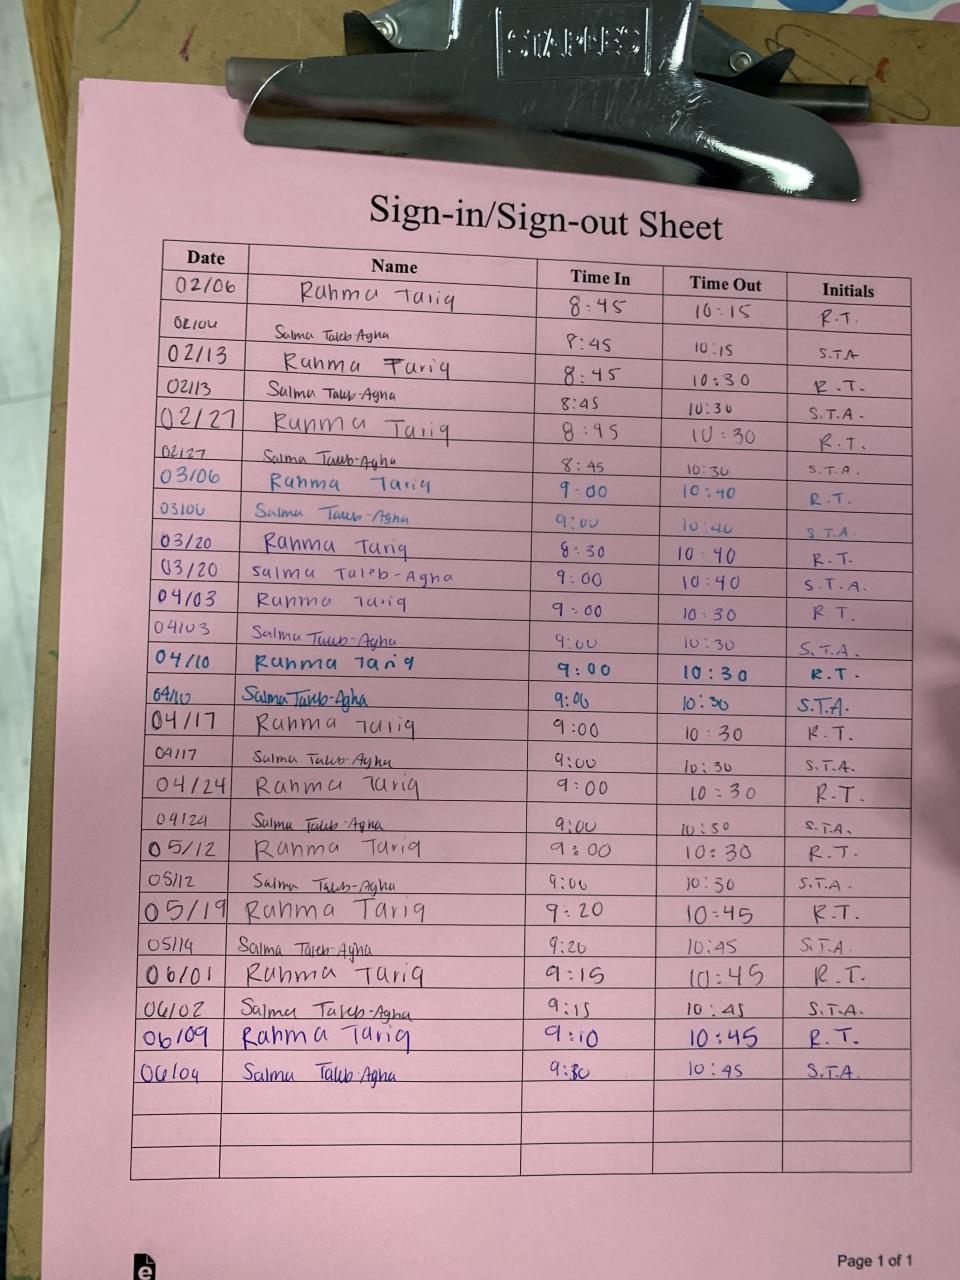 STAPLES
Sign-in/Sign-out Sheet
Date Name Time In Time Out Initials
02/06 Rahma Tariq 8:45 10:15 R.T.
02/06 Salma Taleb-Agha 8:45 10:15 S.T.A
02/13 Rahma Tariq 8:45 10:30 R.T.
02/13 Salma Taleb-Agha 8:45 10:30 S.T.A.
02/27 Rahma Tariq 8:45 10:30 R.T.
02/27 Salma Taleb-Agha 8:45 10:30 S.T.A.
03/06 Rahma Tariq 9:00 10:40 R.T.
03/06 Salma Taleb-Agha 9:00 10:40 S.T.A.
03/20 Rahma Tariq 8:30 10:40 R.T.
03/20 Salma Taleb-Agha 9:00 10:40 S.T.A.
04/03 Rahma Tariq 9:00 10:30 R.T.
04/03 Salma Taleb-Agha 9:00 10:30 S.T.A.
04/10 Rahma Tariq 9:00 10:30 R.T.
04/10 Salma Taleb-Agha 9:00 10:30 S.T.A.
04/17 Rahma Tariq 9:00 10:30 R.T.
04/17 Salma Taleb-Agha 9:00 10:30 S.T.A.
04/24 Rahma Tariq 9:00 10:30 R.T.
04/24 Salma Taleb-Agha 9:00 10:30 S.T.A.
05/12 Rahma Tariq 9:00 10:30 R.T.
05/12 Salma Taleb-Agha 9:00 10:30 S.T.A.
05/19 Rahma Tariq 9:20 10:45 R.T.
05/19 Salma Taleb-Agha 9:20 10:45 S.T.A.
06/01 Rahma Tariq 9:15 10:45 R.T.
06/02 Salma Taleb-Agha 9:15 10:45 S.T.A.
06/09 Rahma Tariq 9:10 10:45 R.T.
06/09 Salma Taleb-Agha 10:45 S.T.A.
e Page 1 of 1